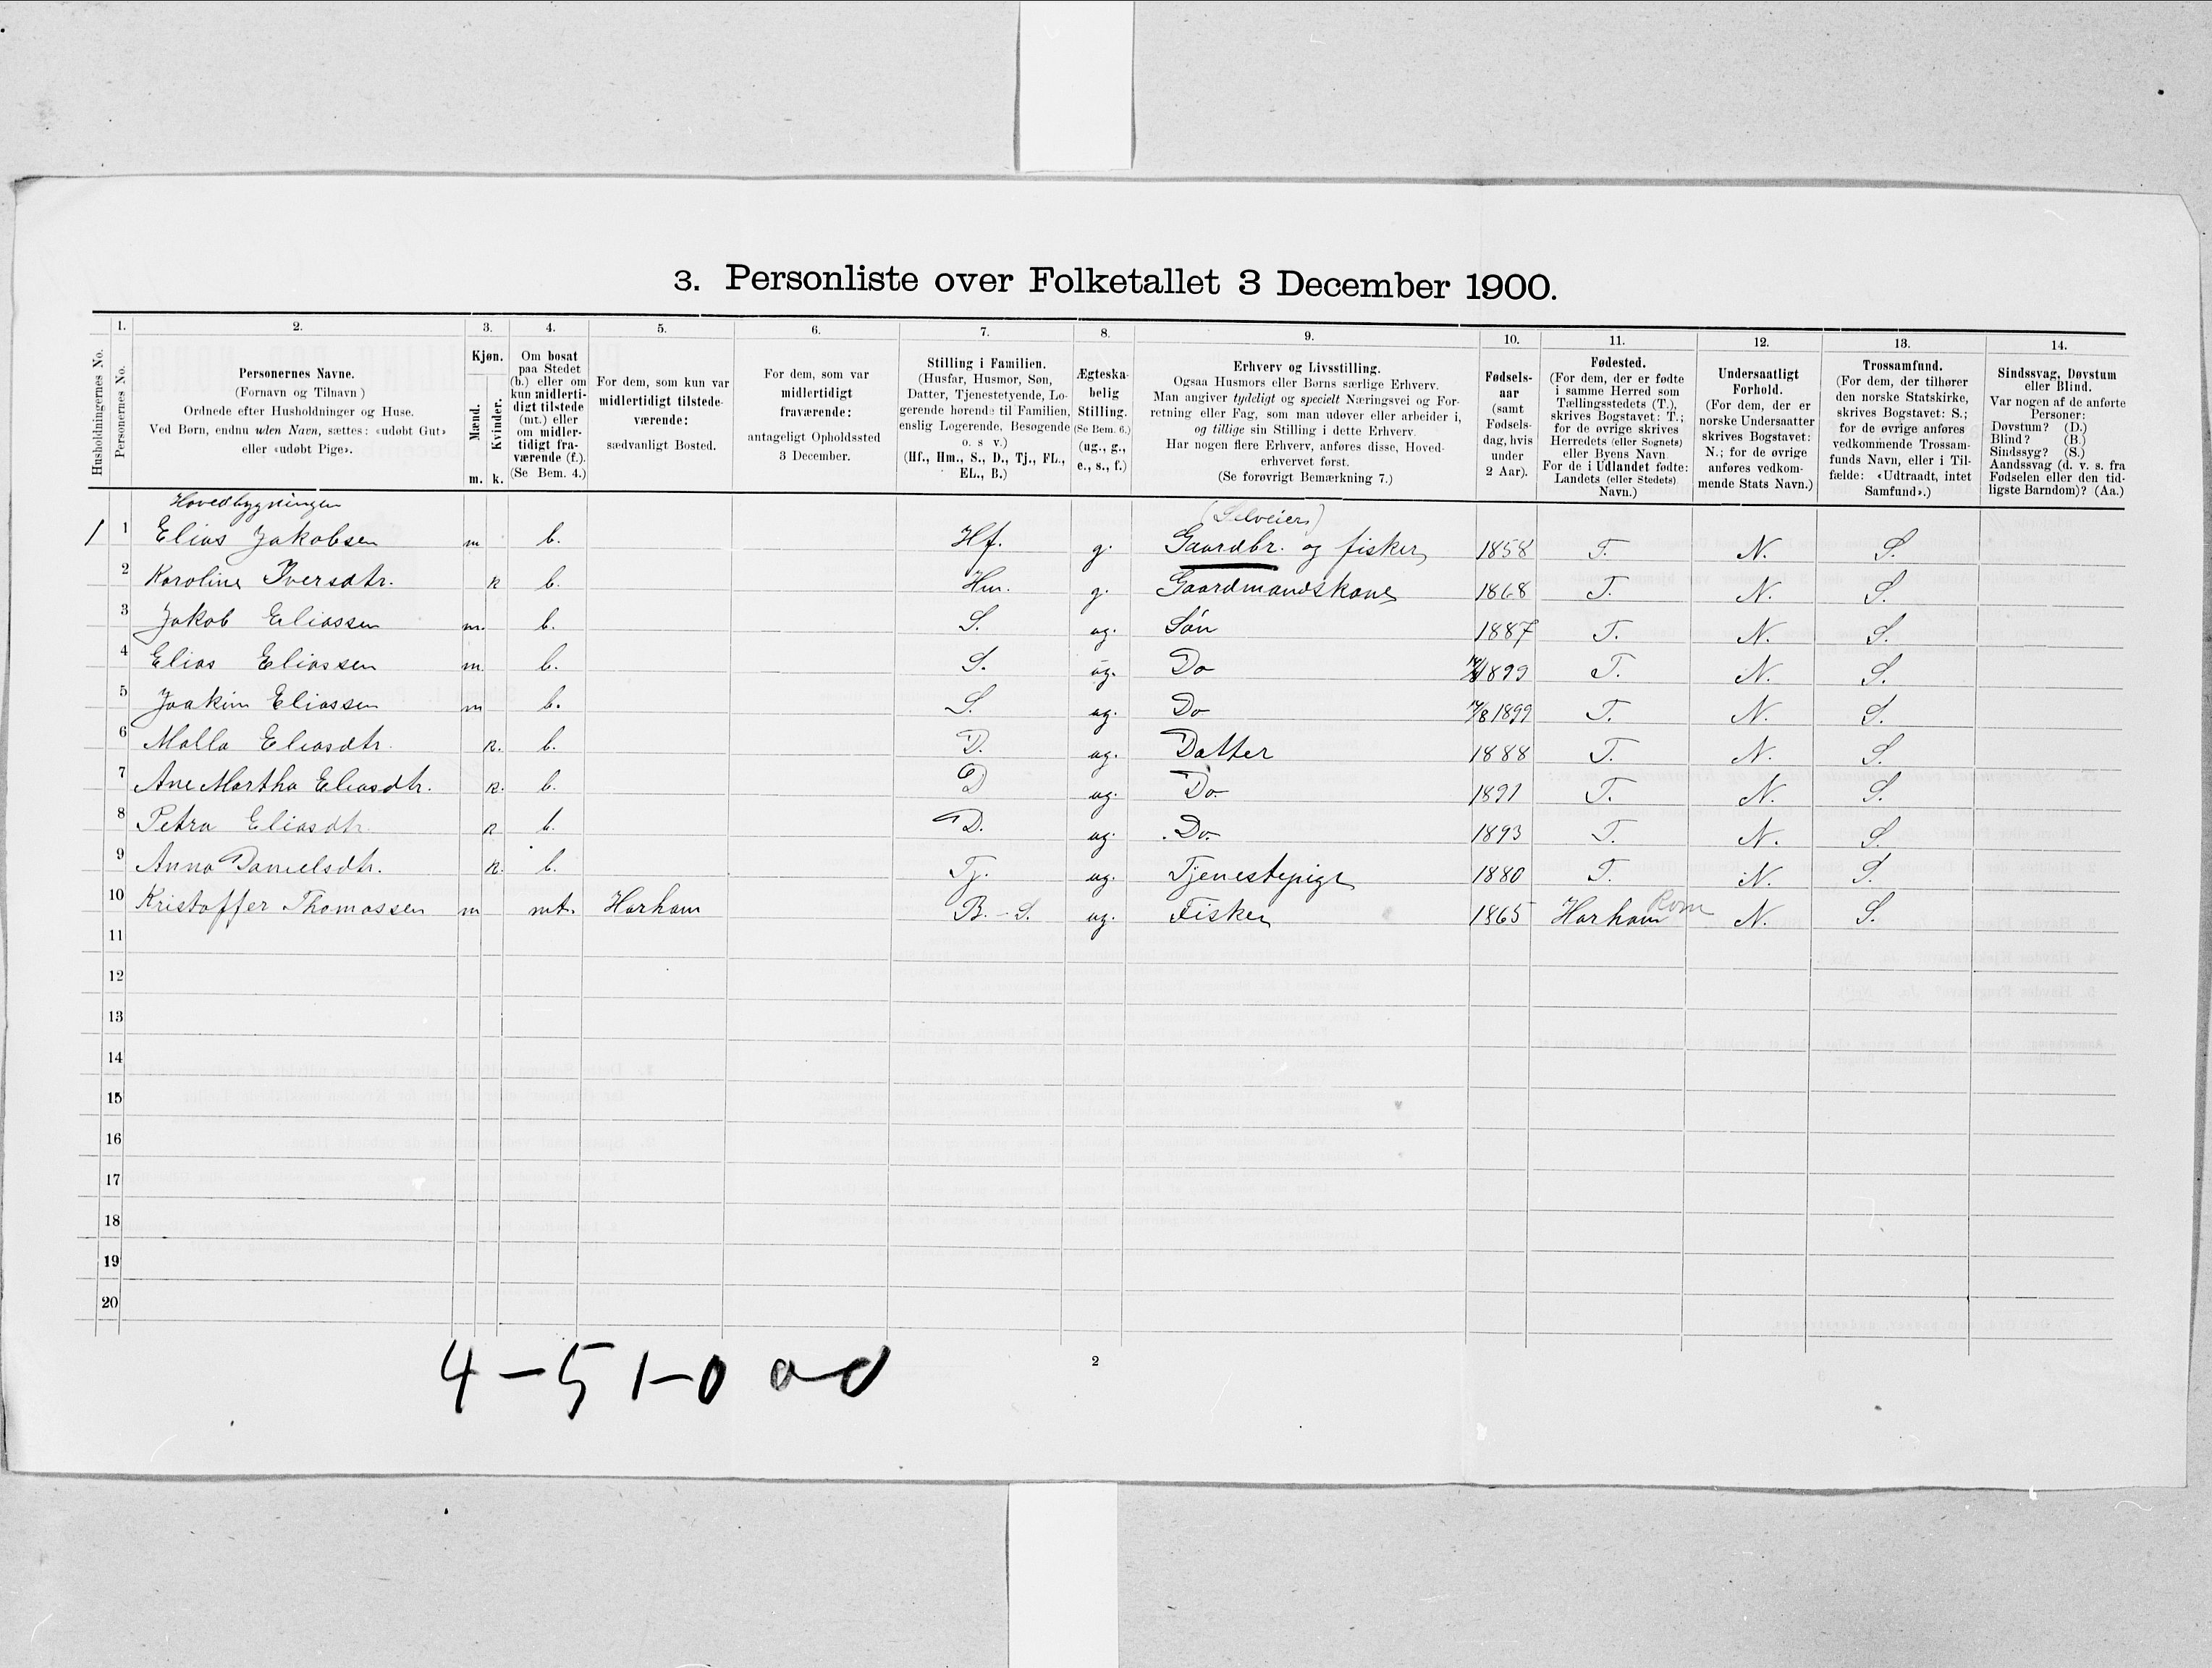 3. Personliste over Folketallet 3 December 1900.
1. 2. 3. 4. 5. 6. 7. 8. 9. 10. 11. 12. 13. 14.
Husholdningernes No.
Personernes No.
Personernes Navne.
(Fornavn og Tilnavn)
Ordnede efter Husholdninger og Huse.
Ved Børn, endnu uden Navn, sættes: «udøbt Gut»
eller «udøbt Pige».
Kjøn.
Mænd.
Kvinder.
m. k.
Om bosat
paa Stedet
(b.) eller om
kun midlerti-
digt tilstede
(mt.) eller
om midler-
tidigt fra-
værende (f.).
(Se Bem. 4.)
For dem, som kun var
midlertidigt tilstede-
værende:
sædvanligt Bosted.
For dem, som var
midlertidigt
fraværende:
antageligt Opholdssted
3 December.
Stilling i Familien.
(Husfar, Husmor, Søn,
Datter, Tjenestetyende, Lo-
gerende hørende til Familien,
enslig Logerende, Besøgende
o. s v.)
(Hf., Hm., S., D., Tj., FL.,
EL., B.)
Ægteska-
belig
Stilling.
(Se Bem. 6.)
(ug., g.,
e., s., f.)
Erhverv og Livsstilling.
Ogsaa Husmors eller Børns særlige Erhverv.
Man angiver tydeligt og specielt Næringsvei og For-
retning eller Fag, som man udøver eller arbeider i,
og tillige sin Stilling i dette Erhverv.
Har nogen flere Erhverv, anføres disse, Hoved-
erhvervet først.
(Se forøvrigt Bemærkning 7.)
Fødsels-
aar
(samt
Fødsels-
dag, hvis
under
2 Aar).
Fødested.
(For dem, der er fødte
i samme Herred som
Tællingsstedets (T.),
skrives Bogstavet: T.;
for de øvrige skrives
Herredets (eller Sognets)
eller Byens Navn
For de i Udlandet fødte:
Landets (eller Stedets)
Navn.)
Undersaatligt
Forhold.
(For dem, der er
norske Undersaatter
skrives Bogstavet:
N.; for de øvrige
anføres vedkom-
mende Stats Navn.)
Trossamfund.
(For dem, der tilhører
den norske Statskirke,
skrives Bogstavet: S.;
for de øvrige anføres
vedkommende Trossam-
funds Navn, eller i Til-
fælde: «Udtraadt, intet
Samfund».)
Sindssvag, Døvstum
eller Blind.
Var nogen af de anførte
Personer:
Døvstum? (D.)
Blind? (B.)
Sindssyg? (S.)
Aandssvag (d. v. s. fra
Fødselen eller den tid-
ligste Barndom)? (Aa.)
Hovedbygningen
(Selveier)
1 1 Elias Jakobsen m b. Hf. g. Gaardbr. og fisker 1858 T. N. S.
2 Karoline Iversdtr. k b. Hm. g. Gaardmandskone 1868 T. N. S.
3 Jakob Eliassen m. b. S. ug. Søn 1887 T. N. S.
4 Elias Eliassen m. b. S. ug. Do 1899 T. N. S.
5 Joakim Eliassen m b. S. ug. Do 1899 T. N. S.
6 Malla Eliasdtr. k. b. D. ug. Datter 1888 T. N. S.
7 Ane Martha Eliasdtr. k. b. D ug. Do 1891 T. N. S.
8 Petra Eliasdtr. k b. D. ug. Do. 1893 T. N. S.
9 Anna Danielsdtr. k. b. Tj. ug. Tjenestepige 1880 T. N. S.
10 Kristoffer Thomassen m mt. Harham B. - S. ug. Fisker 1865 Harham Rom N. S.
11
12
13
14
15
16
17
18
19
20
4 - 5 1 - 0 0 - 0
2